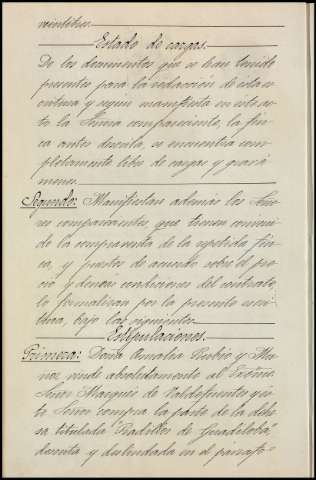 veintitres.
Estado de cargas.
De los documentos que se han tenido
presentes para la redacción de esta es-
critura y según manifiesta en este ac-
to la Señora compareciente, la fin-
ca antes descrita, se encuentra com-
pletamente libre de cargas y gravá-
menes.
Segundo: Manifiestan además los Seño-
res comparecientes que tienen conveni-
da la compraventa de la repetida fin-
ca, y puestos de acuerdo sobre el pre-
cio y demás condiciones del contrato,
lo formalizan por la presente escri-
tura, bajo las siguientes
Estipulaciones.
Primera: Doña Amalia Rubio y Mu-
ñoz vende absolutamente al Excmo.
Señor Marqués de Valdefuentes y és-
te Señor compra la parte de la dehe-
sa titulada "Pradillos de Guadiloba",
descrita y deslindada en el párrafo